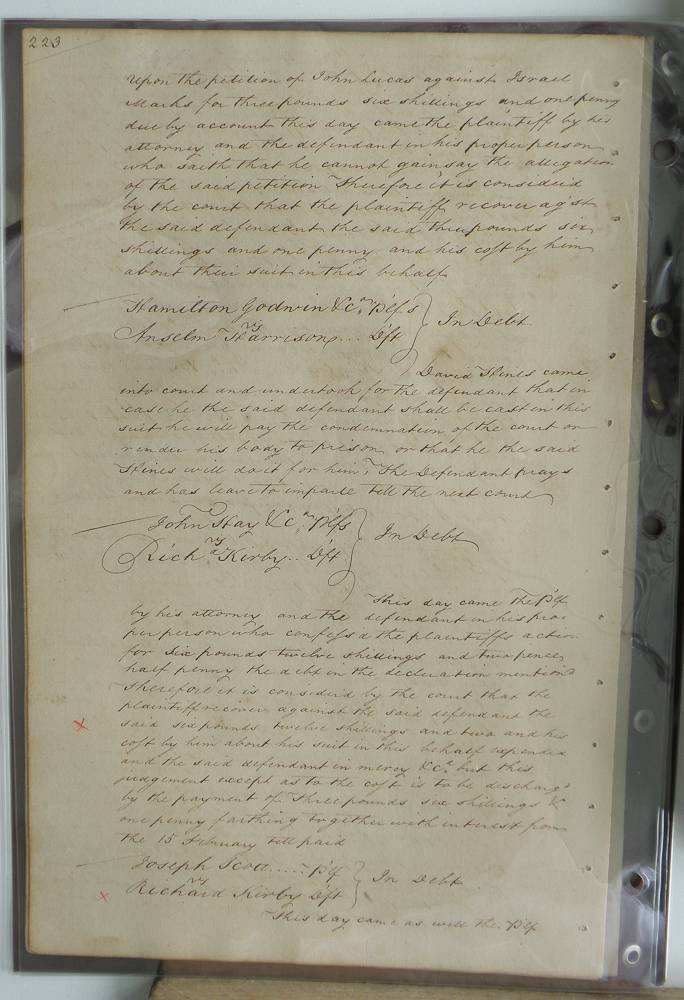 223
Upon the petition of John Lucas against Israel
Marks for three pounds six shillings and one penny
due by account this day came the plaintiff by his
attorney and the defendant in his proper person
who saith that he cannot gainsay the allegation
of the said petition Therefore it is consider'd
by the court that the plaintiff recover ag'st
the said defendant the said three pounds six
shillings and one penny and his cost by him
about their suit in this behalf
Hamilton Godwin &c.ª Pl'fs
vs
Anselm Harrison ... Df't
In Debt
David Hines came
into court and undertook for the defendant that in
case he the said defendant shall be cast in this
suit he will pay the condemnation of the court or
render his body to prison or that he the said
Hines will do it for him, The Defendant prays
and has leave to imparle till the next court
John Hay &c.ª Pl'fs
vs
Rich.d Kirby .. Df't
In Debt
This day came the Pl'f
by his attorney and the defendant in his pro-
per person who confess'd the plaintiffs action
for six pounds twelve shillings and two pence
half penny the debt in the declaration mention'd
Therefore it is consider'd by the court that the
plaintiff recover against the said defendant the
said six pounds twelve shillings and two and his
cost by him about his suit in this behalf expended
and the said defendant in mercy &c.ª but this
judgement except as to the cost is to be discharg'd
by the payment of Three pounds six shillings &
one penny farthing together with interest from
the 15 February till paid
Joseph Scott ..... Pl'f
vs
Richard Kirby Df't
In Debt
This day came as well the Pl'f